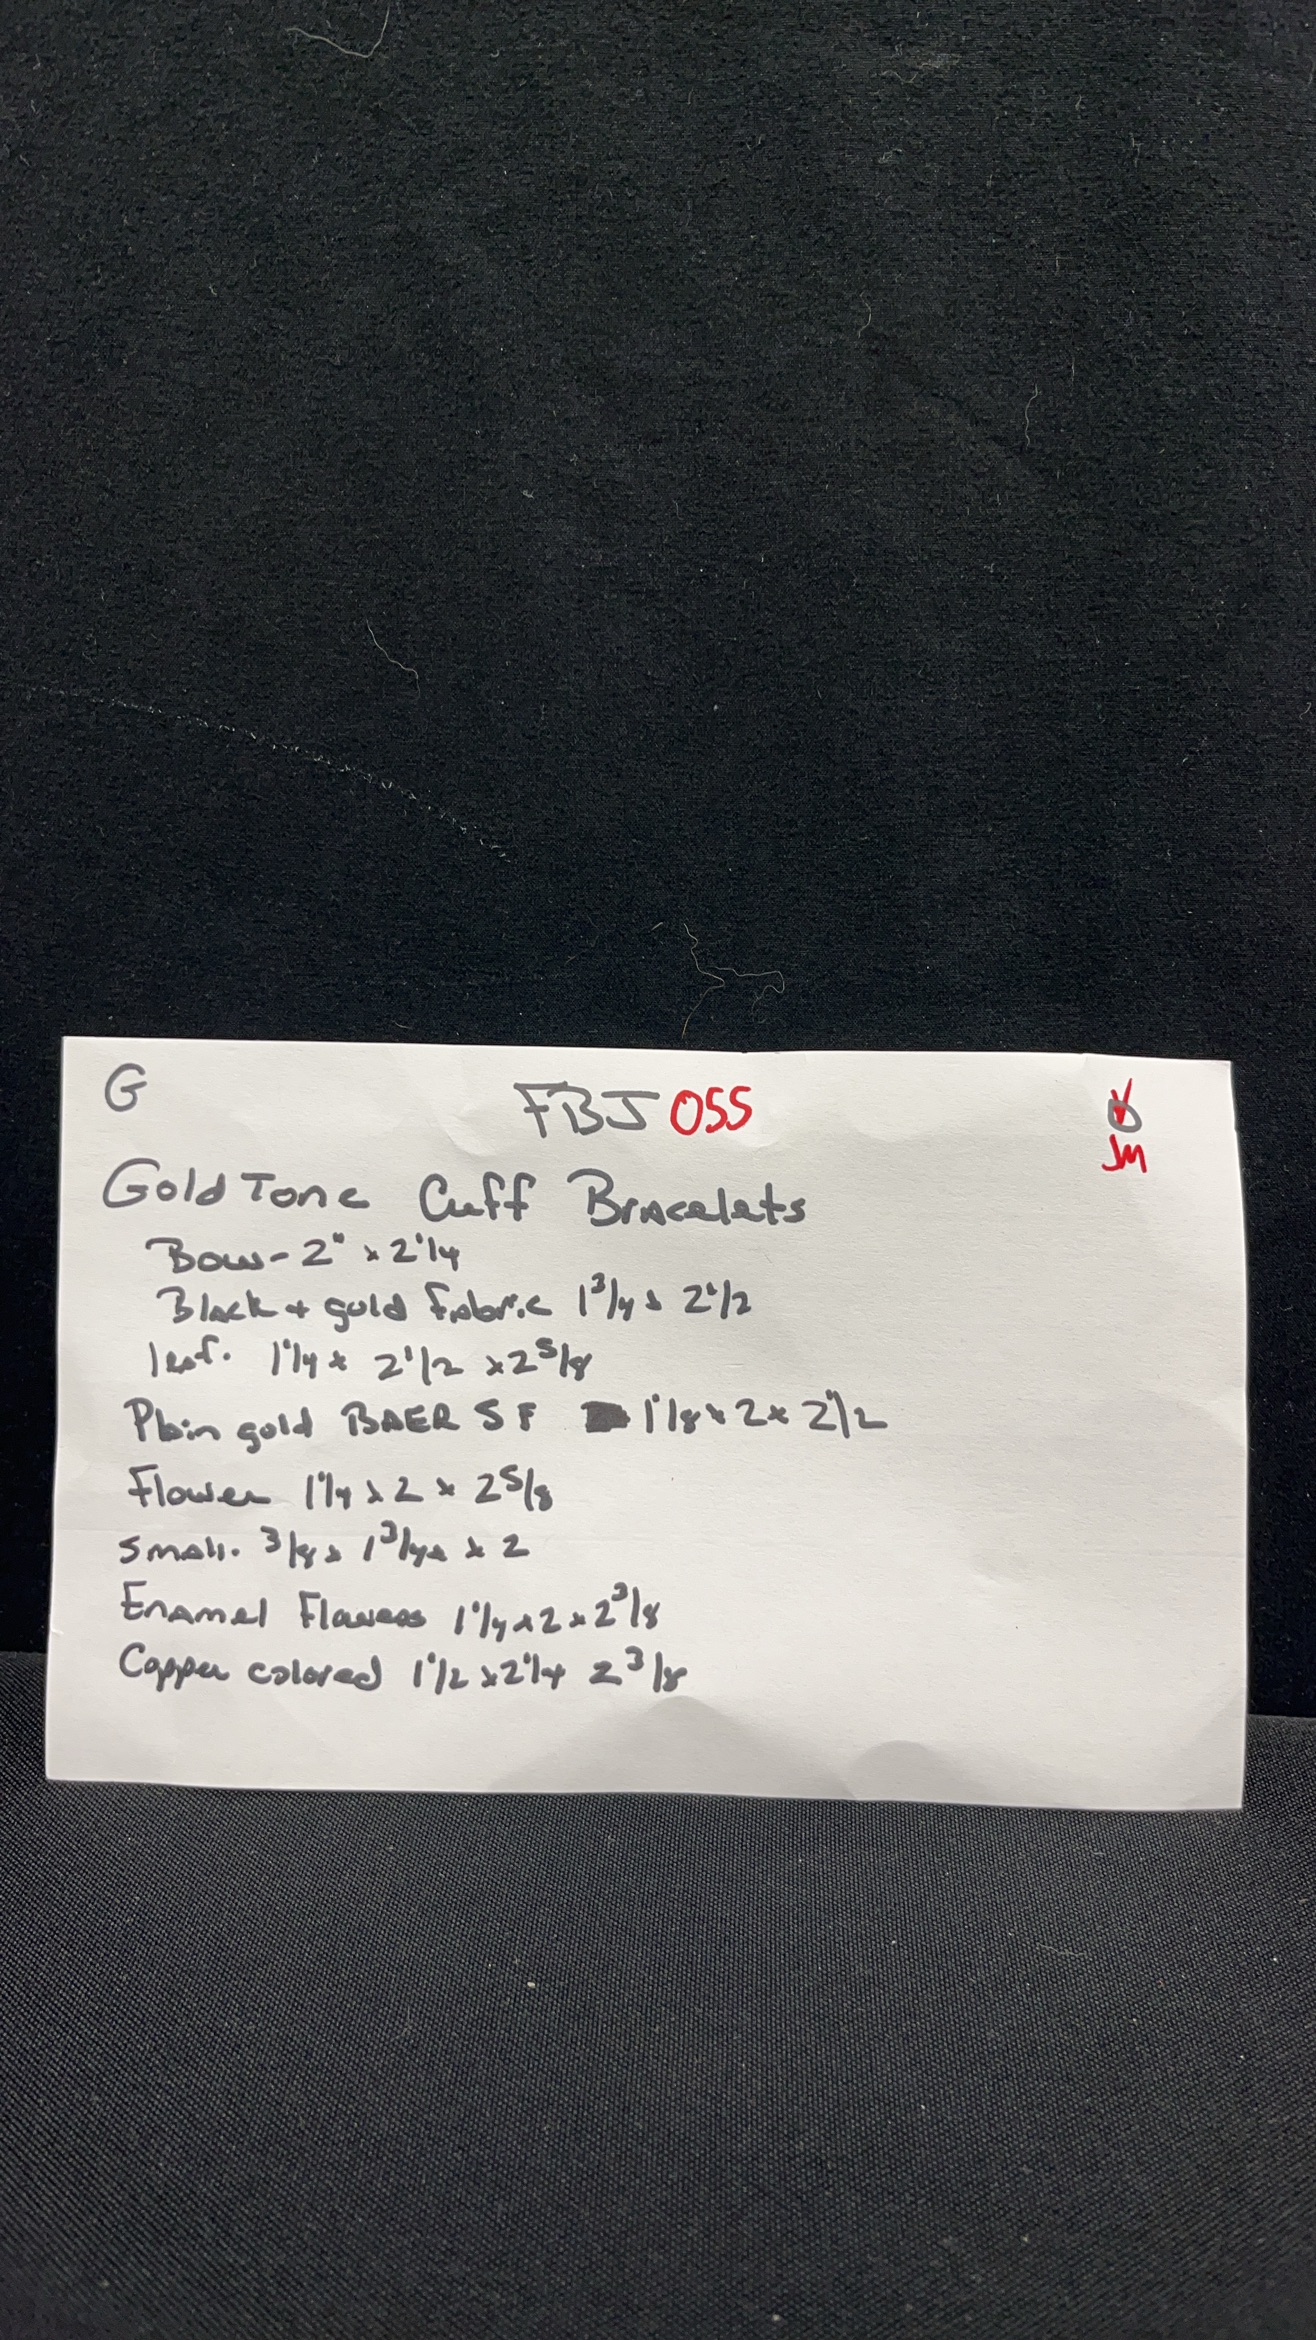 G FBJ 055
JM
Gold Tone Cuff Bracelets
Bow - 2" x 2 1/4
Black + gold fabric 1 3/4 x 2 1/2
leaf. 1 1/4 x 2 1/2 x 2 5/8
Plain gold BAER SF 1 1/8 x 2 x 2 1/2
Flower 1 1/4 x 2 x 2 5/8
small. 3/8 x 1 3/4 x 2
Enamel Flowers 1 1/4 x 2 x 2 3/8
Copper colored 1 1/2 x 2 1/4 2 3/8